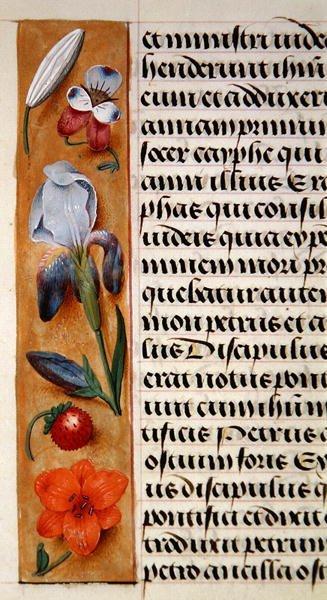 et ministri iudeo
henderunt ihm
eum et adduxer
annam primum
socer cayphe qui
anni illius Era
phas qui consil
iudeis quia expe
minem mori pr
quebatur autem
mon petrus et a
lius Discipulus
erat notus pont
uit cum ihm in
tificis Petrus a
ostium foris Ex
us discipulus q
pontifici et dixit
traduxit petrum
petro ancilla ost